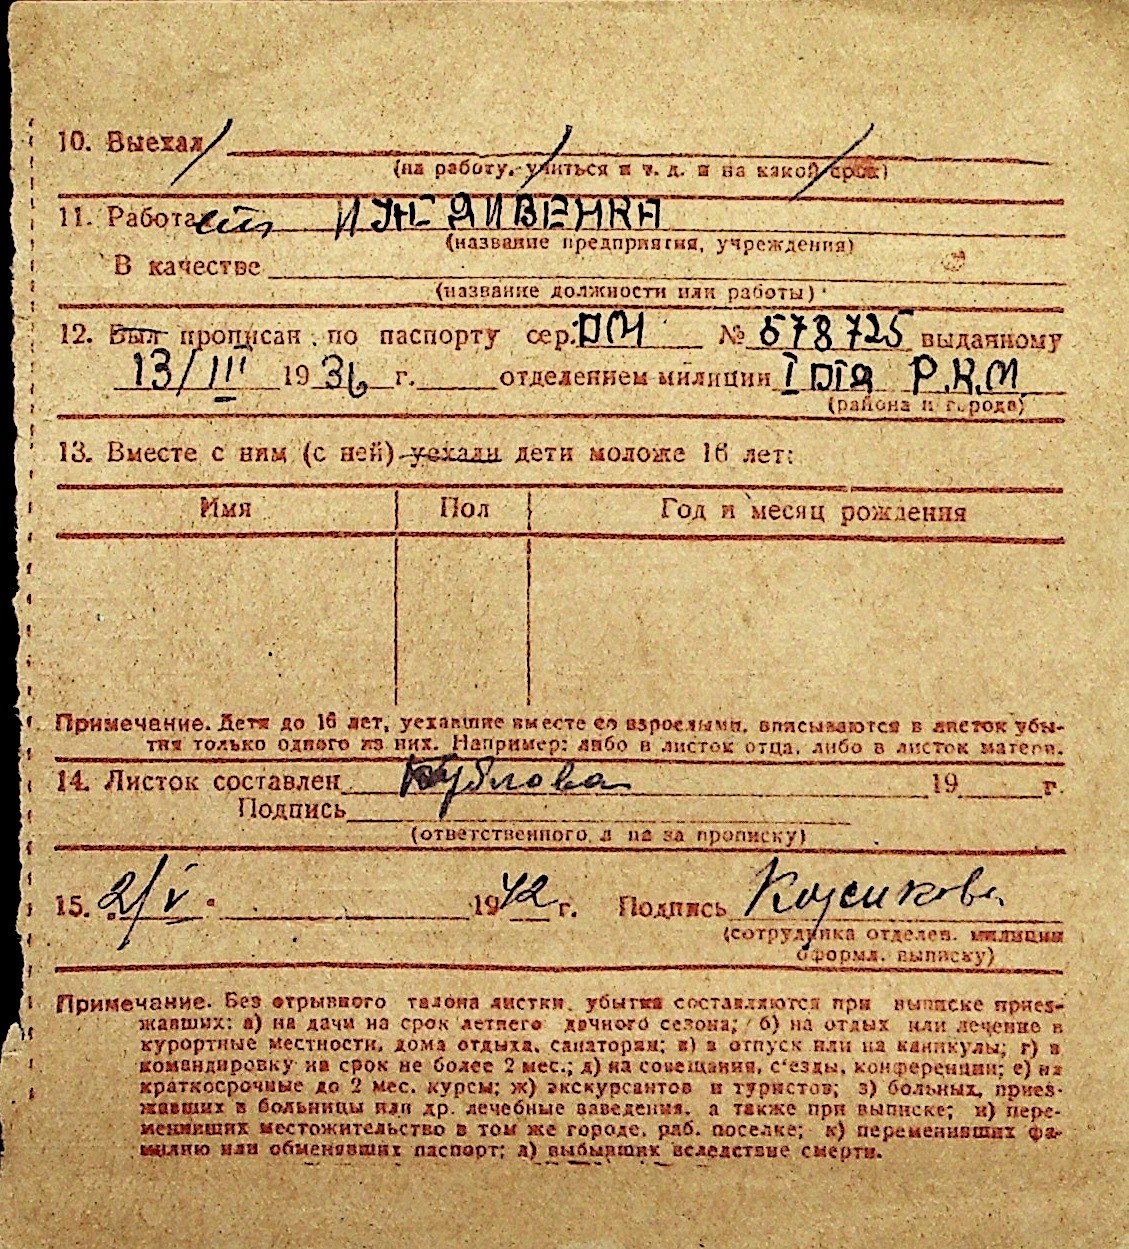 10. Выехал
(на работу, учиться и т. д. и на какой срок)
11. Работает ИЖДИВЕНКА
(название предприятия, учреждения)
В качестве
(название должности или работы)
12. Был прописан по паспорту сер. ПМ № 578725 выданному
13/III 1936 г. отделением милиции I ОТД Р.К.М
(района и города)
13. Вместе с ним (с ней) уехали дети моложе 16 лет:
Имя Пол Год и месяц рождения
Примечание. Дети до 16 лет, уехавшие вместе со взрослыми, вписываются в листок убы-
тия только одного из них. Например: либо в листок отца, либо в листок матери.
14. Листок составлен 19 г.
Подпись
(ответственного л на за прописку)
15. 2/V 1942 г. Подпись
(сотрудника отделен. милиции
оформл. выписку)
Примечание. Без отрывного талона листки убытия составляются при выписке приез-
жавших: а) на дачи на срок летнего дачного сезона; б) на отдых или лечение в
курортные местности, дома отдыха, санатории; в) в отпуск или на каникулы; г) в
командировку на срок не более 2 мес.; д) на совещания, с'езды, конференции; е) на
краткосрочные до 2 мес. курсы; ж) экскурсантов и туристов; з) больных, приез-
жавших в больницы или др. лечебные заведения, а также при выписке; и) пере-
менивших местожительство в том же городе, раб. поселке; к) переменивших фа-
милию или обменявших паспорт; л) выбывших вследствие смерти.